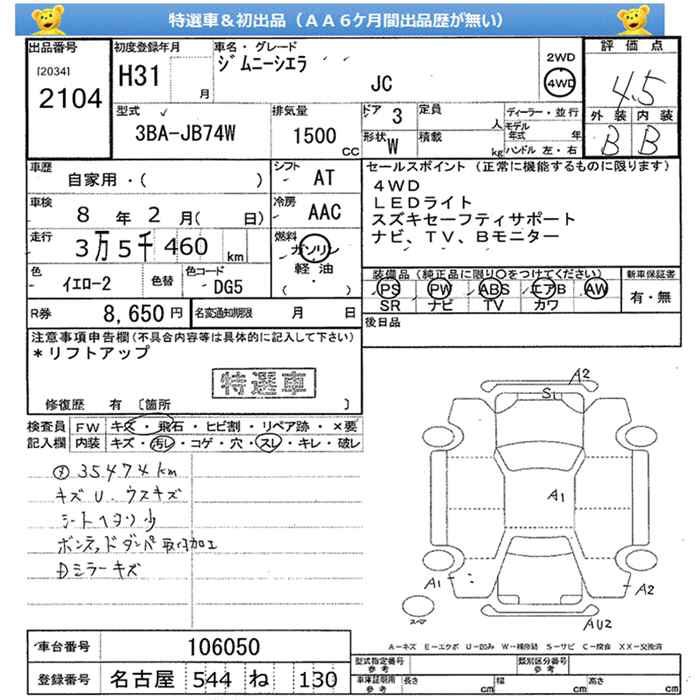 特選車＆初出品（ＡＡ６ケ月間出品歴が無い）
出品番号 初度登録年月 車名・グレード 評価点
[2034] H31 月 ジムニーシエラ 2WD 4.5
2104 JC 4WD
型式 排気量 ドア 3 定員 人 ディーラー・並行 外装 内装
3BA-JB74W 1500 CC 形状 W 積載 kg モデル年式 年 B B
ハンドル 左・右
車歴 自家用・( ) シフト AT セールスポイント（正常に機能するものに限ります）
車検 8 年 2 月( 日) 冷房 AAC 4WD
LEDライト
スズキセーフティサポート
走行 3万5千460 km 燃料 ガソリン ナビ、TV、Bモニター
軽油
( ・ )
色 イエロー2 色替 色コード DG5 装備品（純正品に限り○をつけてください） 新車保証書
PS PW ABS エアB AW 有・無
SR ナビ TV カワ
R券 8,650 円 名変通知期限 月 日 後日品
注意事項申告欄(不具合内容等は具体的に記入して下さい)
*リフトアップ
特選車
修復歴 有 〔箇所 〕
検査員 FW キズ・飛石・ヒビ割・リペア跡・×要
記入欄 内装 キズ・汚レ・コゲ・穴・スレ・キレ・破レ
35474km
キズ U. ウスキズ
シートヘヨゾ少
ボンネッドダンパ取付加工
Dミラーキズ
A2
S1
A1
A1
A2
AU2
スペア
A-キズ E-エクボ U-凹み W-補修跡 S-サビ C-腐食 XX-交換済
車台番号 106050
登録番号 名古屋 544 ね 130
型式指定番号 参考 類別区分番号 参考
車庫証明用 参考 長さ cm 幅 cm 高さ cm